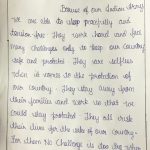 Because of our Indian Army
We are able to sleep peacefully and
tension free They work hard and face
Many challenges only to keep our Country
safe and protected They are selfless
when it comes to the protection of
our country. They stay away from
their families and work us that we
could stay protected They all risk
their lives for the sake of our country.
For them No Challenge is too big when